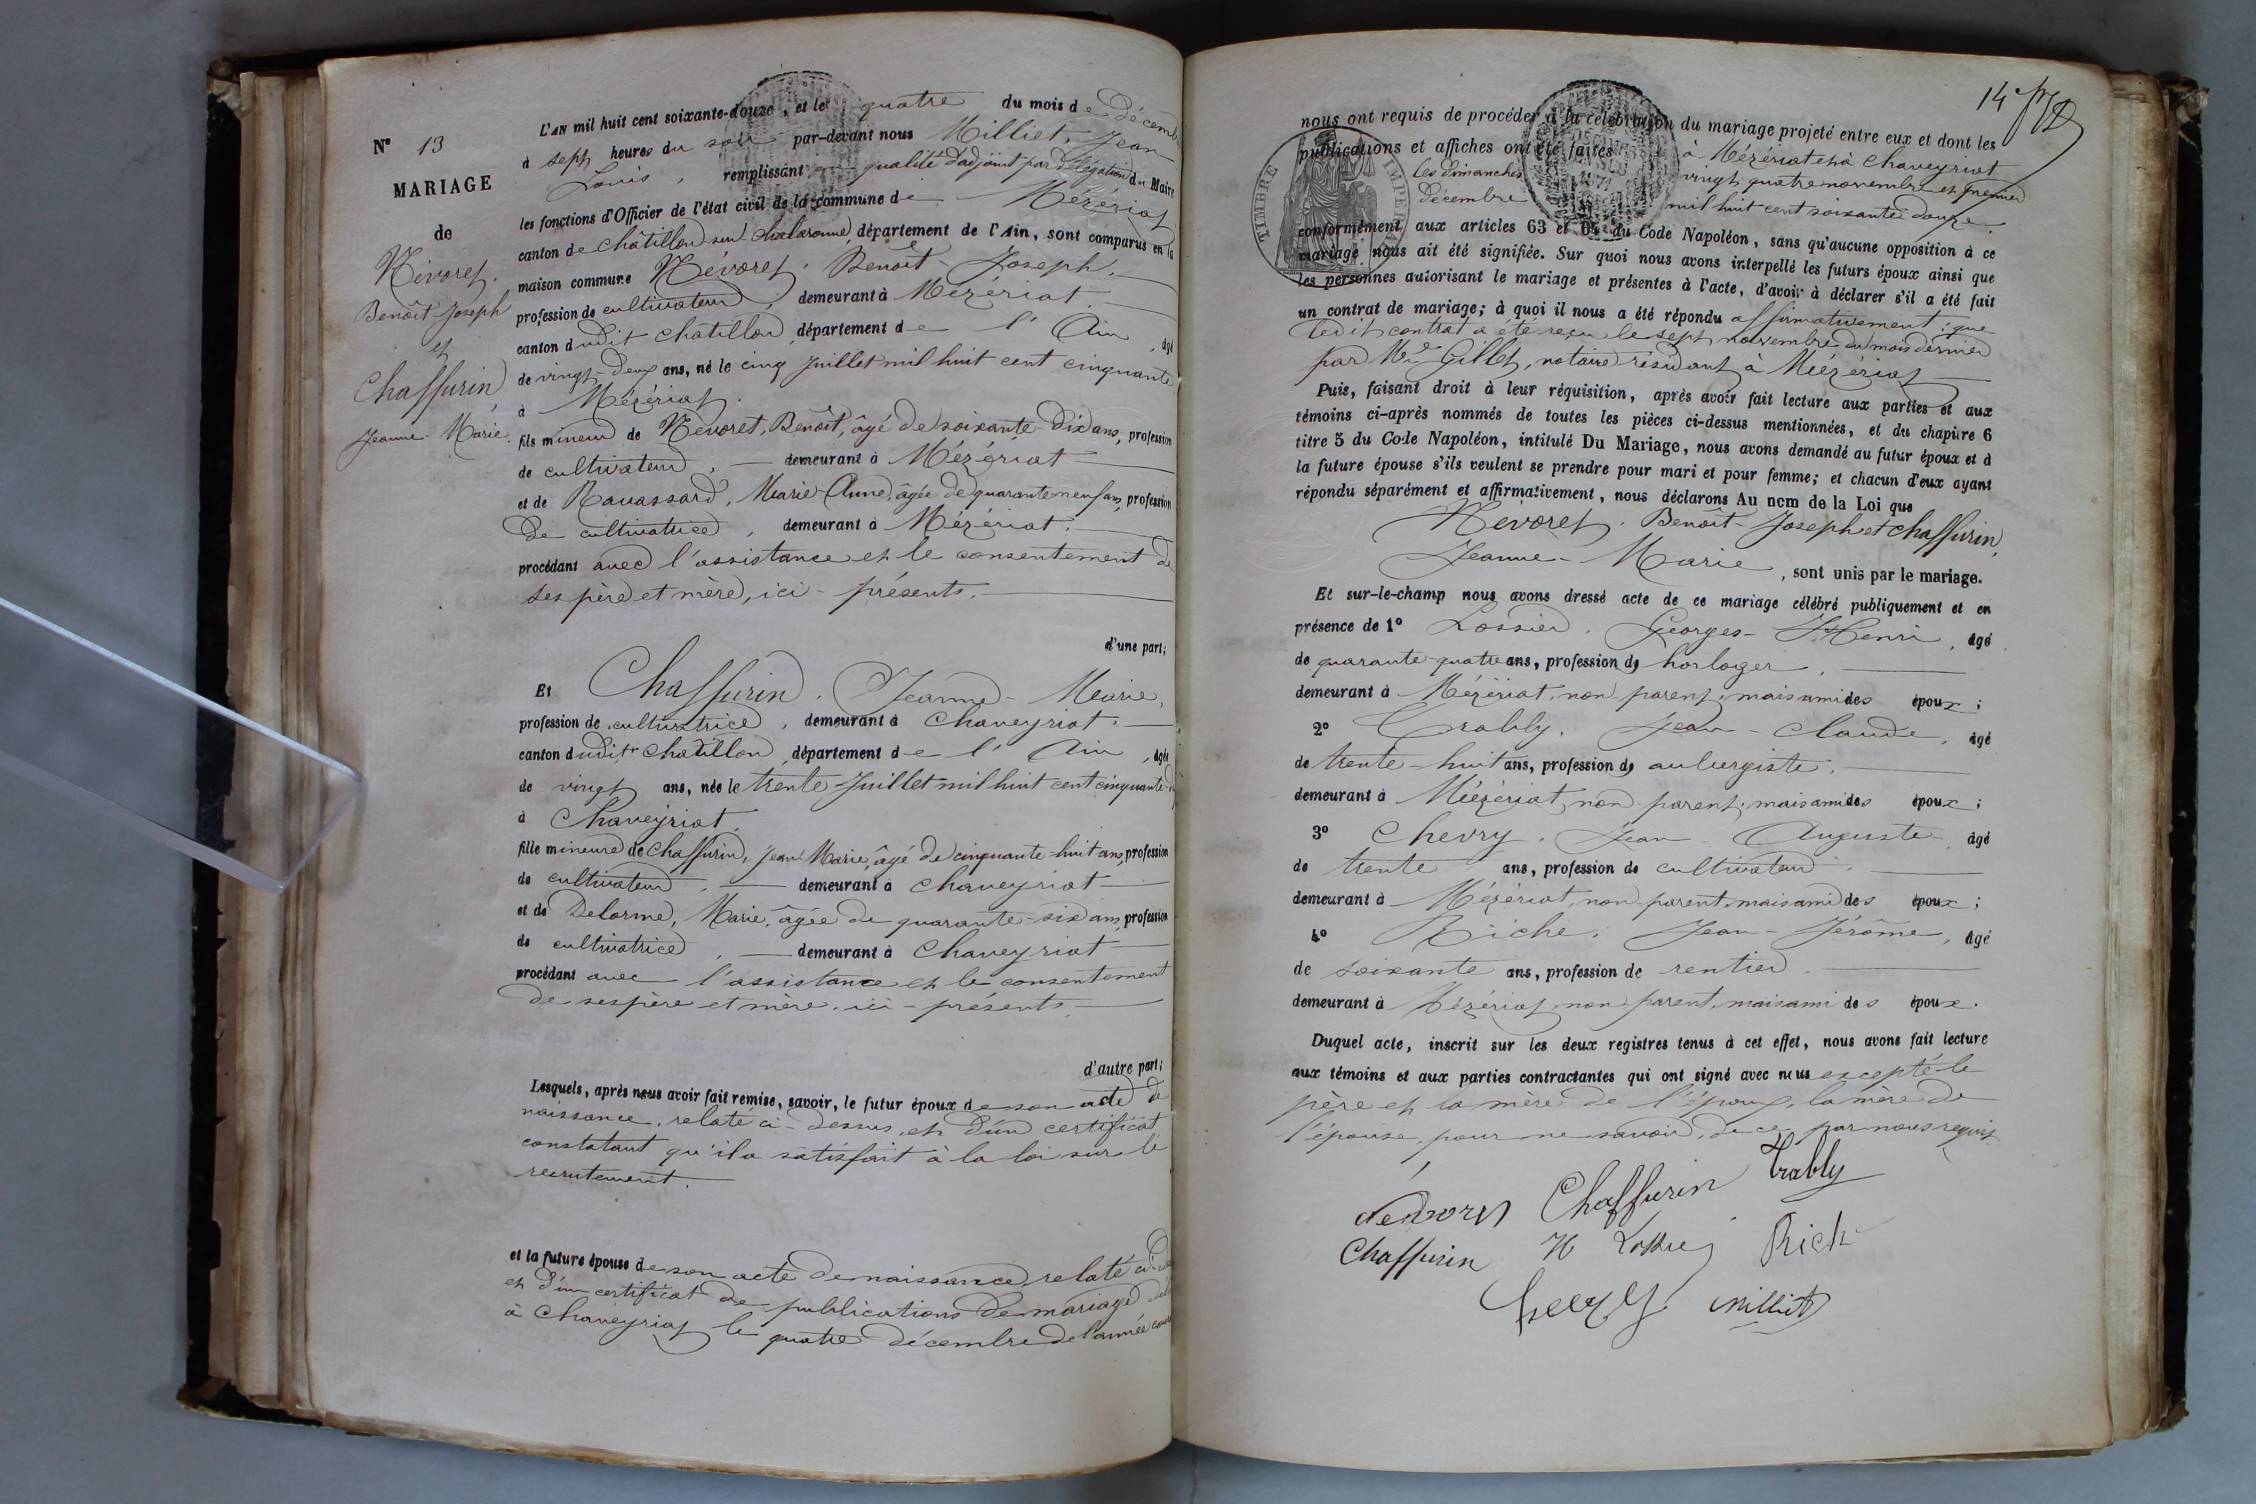 N° 13
MARIAGE
de
Névoret.
Benoît-Joseph
et
Chaffurin
Jeanne-Marie.
L'AN mil huit cent soixante-douze, et le quatre du mois de décembre
à sept heures du soir par-devant nous Milliet, Jean
Louis, remplissant en qualité d'adjoint par délégation du Maire
les fonctions d'Officier de l'état civil de la commune de Mézériat
canton de Châtillon sur Chalaronne, département de l'Ain, sont comparus en la
maison commune Névoret. Benoît-Joseph.
profession de cultivateur, demeurant à Mézériat.
canton dudit Chatillon, département de l'Ain, âgé
de vingt-deux ans, né le cinq Juillet mil huit cent cinquante
à Mézériat.
fils mineur de Névoret, Benoît, âgé de soixante-dix ans, profession
de cultivateur, demeurant à Mézériat
et de Ravassard, Marie-Anne, âgée de quarante neuf ans, profession
de cultivatrice, demeurant à Mézériat.
procédant avec l'assistance et le consentement de
ses père et mère, ici-présents.
d'une part;
Et Chaffurin. Jeanne-Marie,
profession de cultivatrice, demeurant à Chaveyriat.
canton dudit Chatillon, département de l'Ain, âgée
de vingt ans, née le trente Juillet mil huit cent cinquante-
à Chaveyriat.
fille mineure de Chaffurin, Jean Marie, âgé de cinquante-huit ans, profession
de cultivateur, demeurant à Chaveyriat
et de Delorme, Marie, âgée de quarante-six ans, profession
de cultivatrice, demeurant à Chaveyriat
procédant avec l'assistance et le consentement
de ses père et mère, ici-présents.
d'autre part;
Lesquels, après nous avoir fait remise, savoir, le futur époux de son acte de
naissance, relaté ci-dessus, et d'un certificat
constatant qu'il a satisfait à la loi sur le
recrutement.
et la future épouse de son acte de naissance, relaté ci
et d'un certificat de publications de mariage
à Chaveyriat le quatre décembre de l'année
14
nous ont requis de procéder à la célébration du mariage projeté entre eux et dont les
publications et affiches ont été faites à Mézériat et à Chaveyriat
les dimanches vingt quatre novembre et premier
décembre mil huit cent soixante douze.
TIMBRE IMPERIAL
conformément aux articles 63 et 64 du Code Napoléon, sans qu'aucune opposition à ce
mariage nous ait été signifiée. Sur quoi nous avons interpellé les futurs époux ainsi que
les personnes autorisant le mariage et présentes à l'acte, d'avoir à déclarer s'il a été fait
un contrat de mariage; à quoi il nous a été répondu affirmativement; que
ledit contrat a été reçu le sept novembre du mois dernier
par Me Gillet, notaire résidant à Mézériat
Puis, faisant droit à leur réquisition, après avoir fait lecture aux parties et aux
témoins ci-après nommés de toutes les pièces ci-dessus mentionnées, et du chapitre 6
titre 5 du Code Napoléon, intitulé Du Mariage, nous avons demandé au futur époux et à
la future épouse s'ils veulent se prendre pour mari et pour femme; et chacun d'eux ayant
répondu séparément et affirmativement, nous déclarons Au nom de la Loi que
Névoret. Benoît-Joseph et Chaffurin,
Jeanne-Marie, sont unis par le mariage.
Et sur-le-champ nous avons dressé acte de ce mariage célébré publiquement et en
présence de 1° Lossier. Georges-Henri, âgé
de quarante-quatre ans, profession de horloger.
demeurant à Mézériat, non parent, mais ami des époux;
2° Trably. Jean-Claude, âgé
de trente-huit ans, profession de aubergiste.
demeurant à Mézériat, non parent, mais ami des époux;
3° Chevry. Jean Auguste, âgé
de trente ans, profession de cultivateur.
demeurant à Mézériat, non parent, mais ami des époux;
4° Riche. Jean-Jérôme, âgé
de soixante ans, profession de rentier.
demeurant à Mézériat, non parent, mais ami des époux.
Duquel acte, inscrit sur les deux registres tenus à cet effet, nous avons fait lecture
aux témoins et aux parties contractantes qui ont signé avec nous excepté le
père et la mère de l'époux, la mère de
l'épouse, pour ne savoir, de ce par nous requis
Chaffurin Trably
Chaffurin H Rich
Milliet